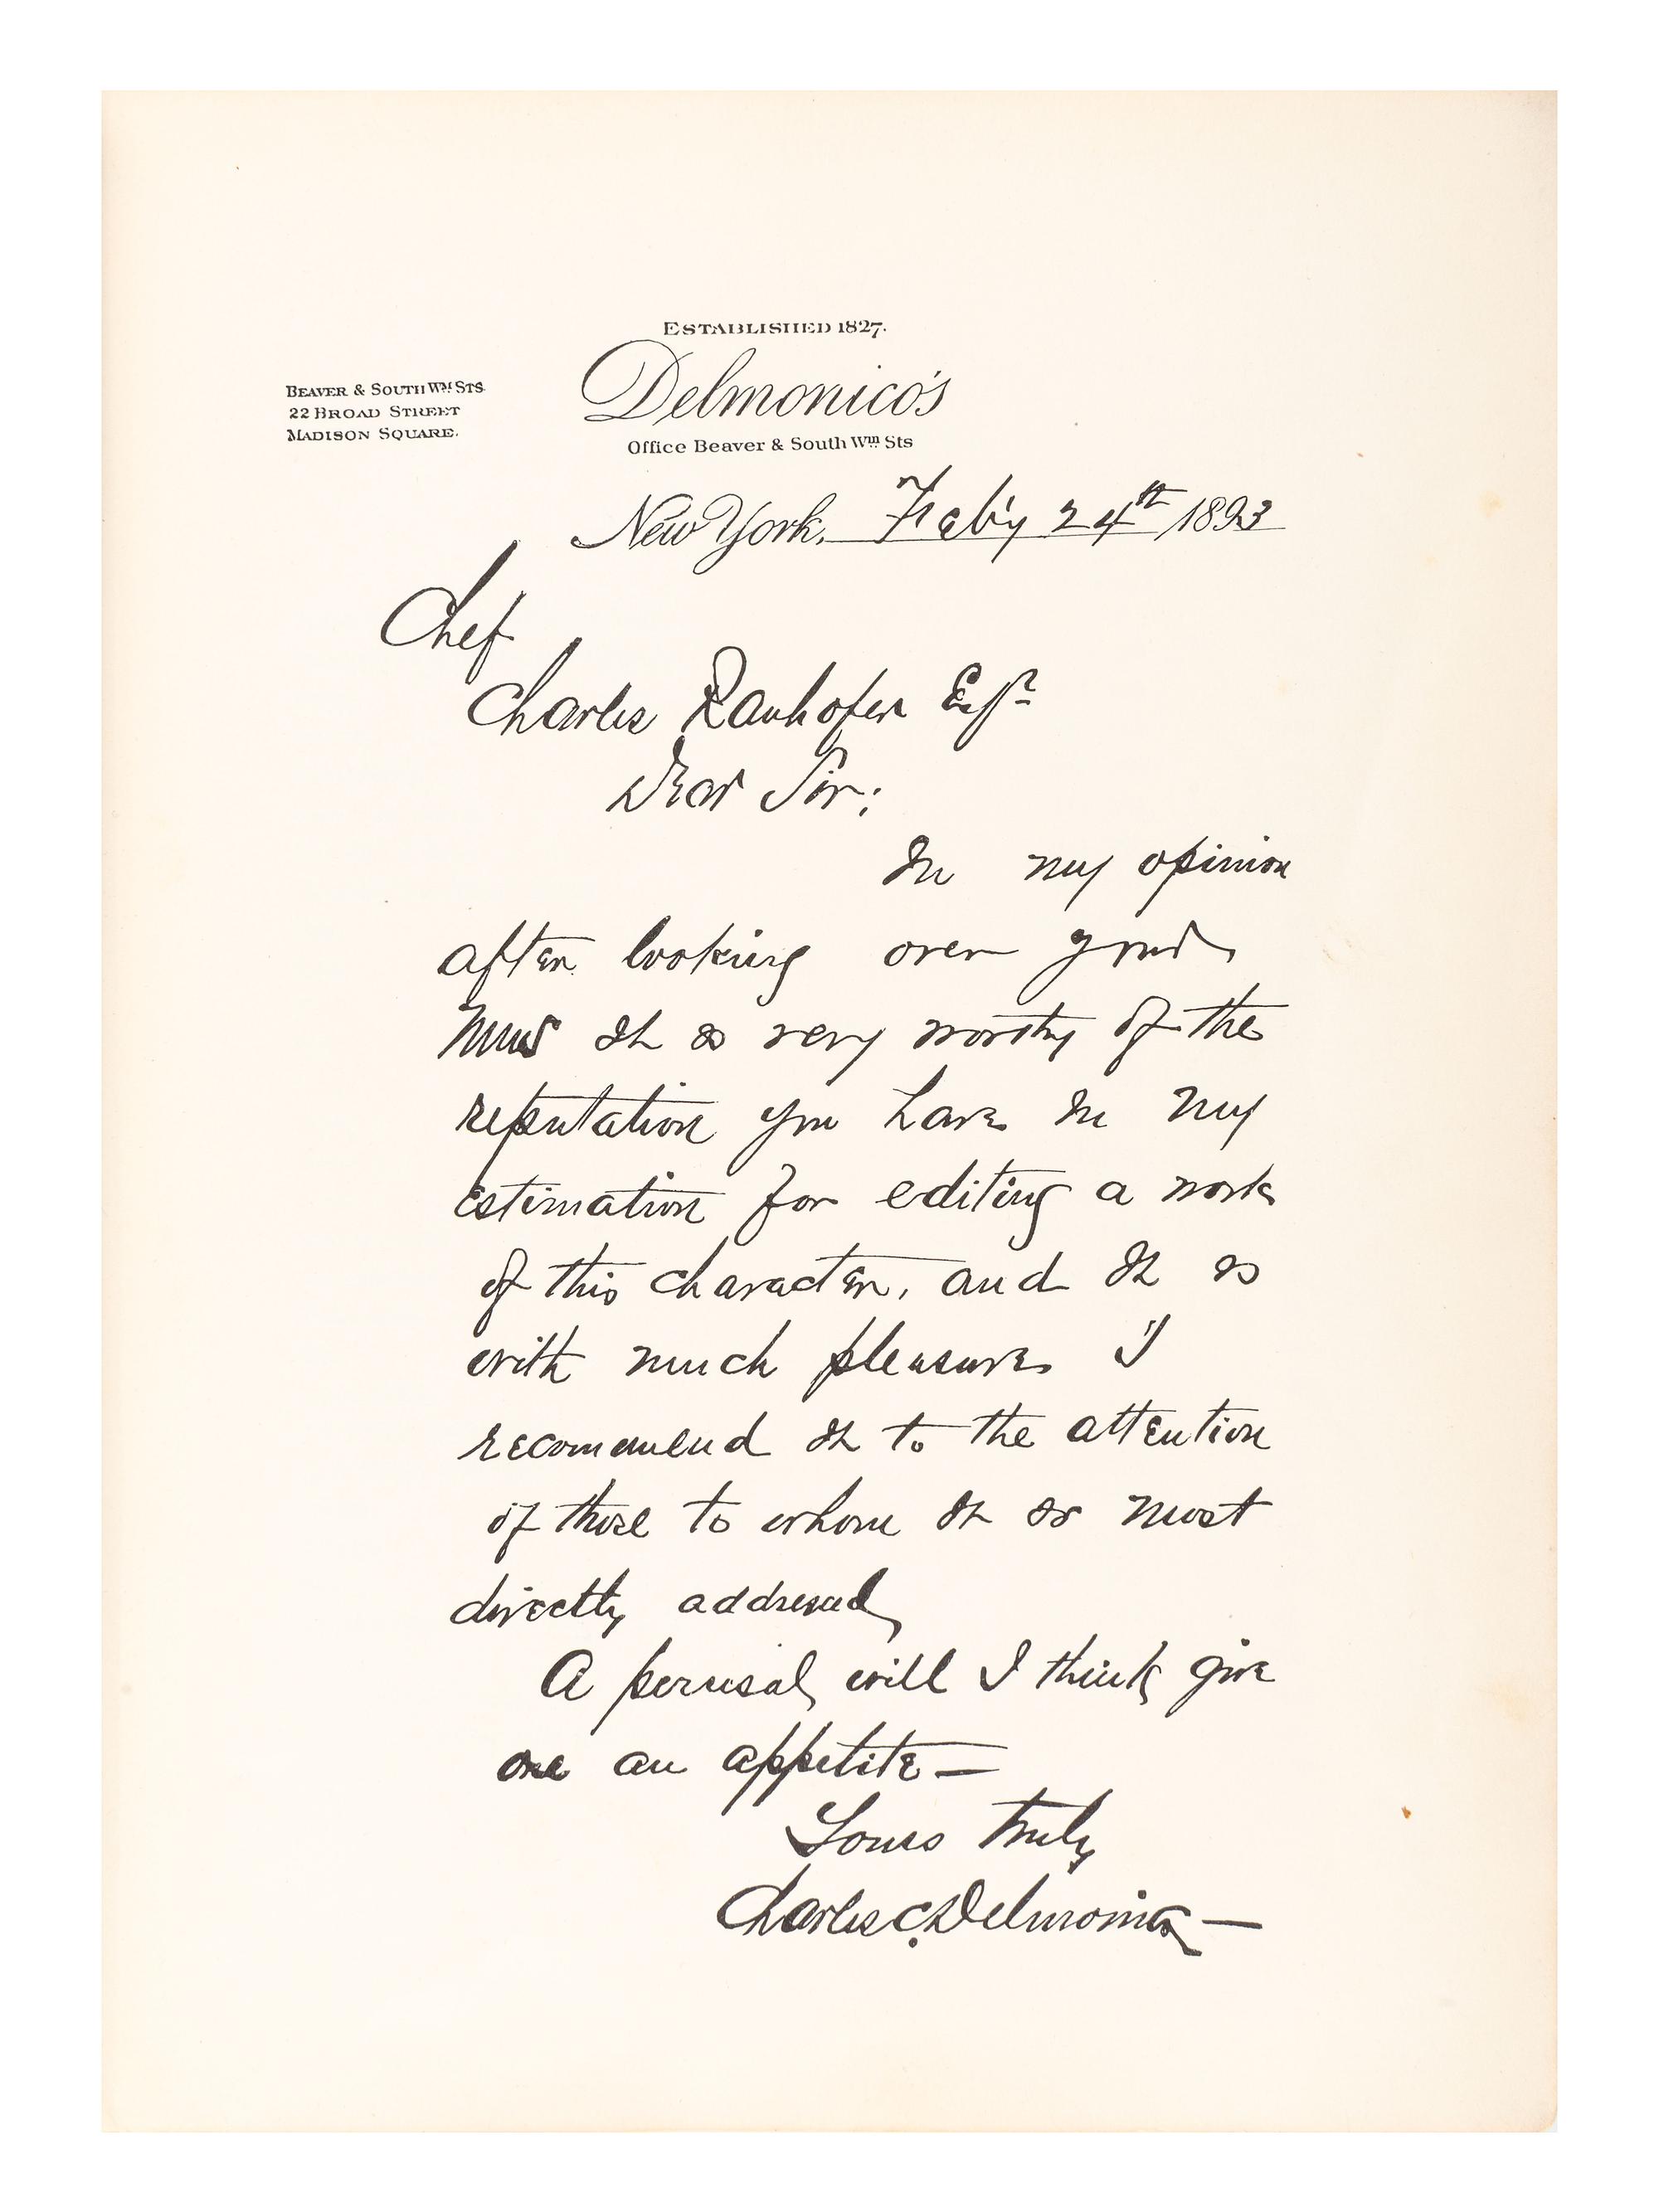 ESTABLISHED 1827.
Delmonico's
BEAVER & SOUTH WM STS.
22 BROAD STREET
MADISON SQUARE.
Office Beaver & South Wm Sts
New York, Feb'y 24th 1893
Chef
Charles Ranhofer Esqr
Dear Sir;
In my opinion
after looking over your
it is very worthy of the
reputation you have in my
estimation for editing a work
of this character, and it is
with much pleasure I
recommend it to the attention
of those to whom it is most
directly addressed
A perusal will I think give
one an appetite —
Yours truly
Charles C. Delmonico —